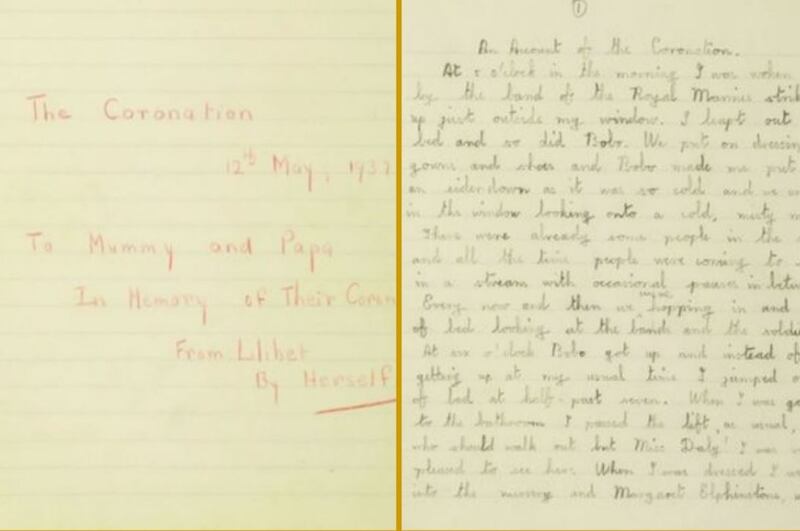 The Coronation
12th May, 1937
To Mummy and Papa
In Memory of Their Coron
From Lilibet
By Herself
1
An Account of the Coronation.
At 5 o'clock in the morning I was woken
by the band of the Royal Marines strik
up just outside my window. I leapt out
bed and so did Bobo. We put on dressing
gowns and shoes and Bobo made me put
an eiderdown as it was so cold and we
in the window looking onto a cold, misty m
There were already some people in the
and all the time people were coming to
in a stream with occasional pauses in betw
Every now and then we were hopping in and
of bed looking at the bands and the soldie
At six o'clock Bobo got up and instead of
getting up at my usual time I jumped o
of bed at half-past seven. When I was go
to the bathroom I passed the lift, as usual,
who should walk out but Miss Daly! I was
pleased to see her. When I was dressed I w
into the nursery and Margaret Elphinstone,